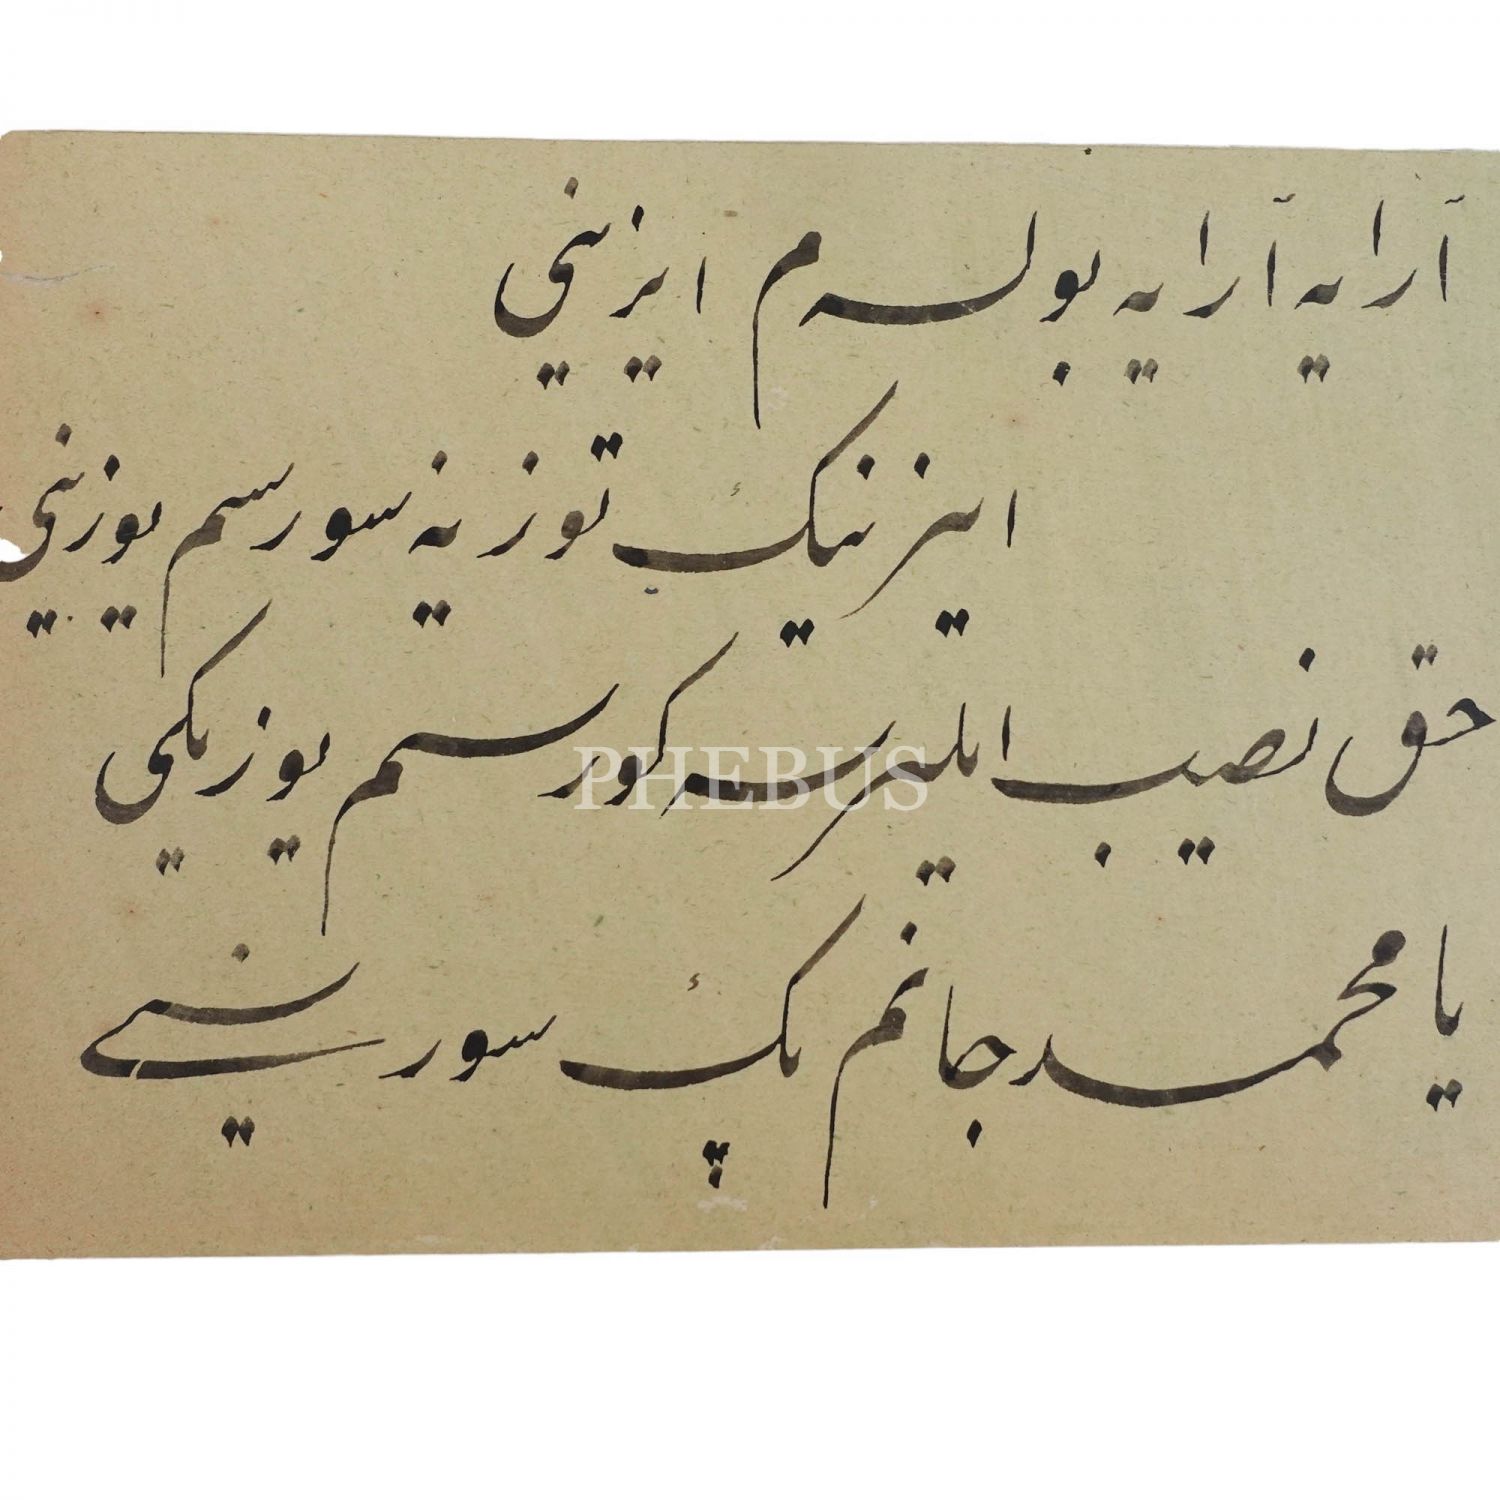 آرایه آرایه بولسه م ایزینی
ایزینیڭ توزینه سورسم یوزینی
حق نصیب ایلیرسه کورسم یوزیکی
یا محمد جانم پك سور سنی
PHEBUS